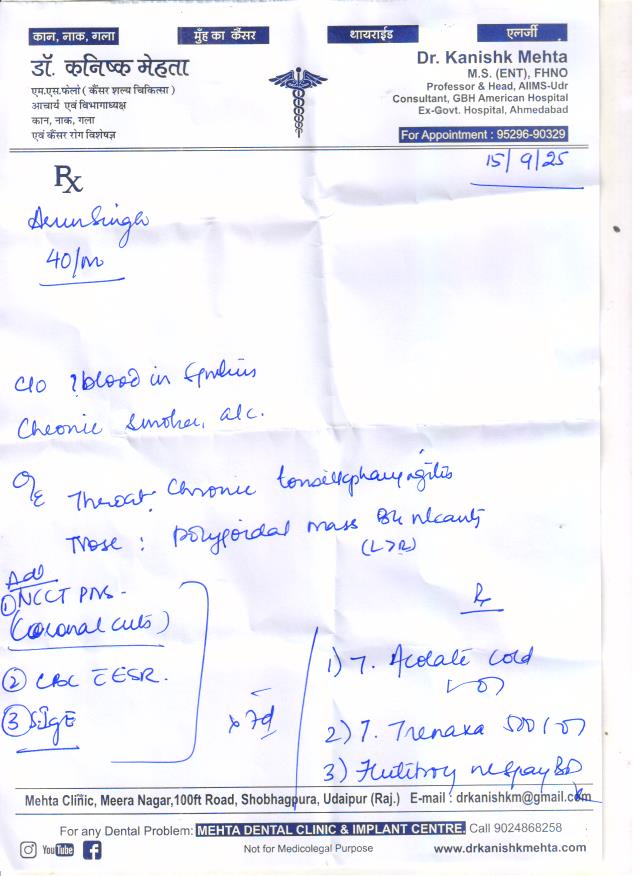 कान, नाक, गला
मुँह का कैंसर
थायराईड
एलर्जी
डॉ. कनिष्क मेहता
एम.एस.फेलो ( कैंसर शल्य चिकित्सा )
आचार्य एवं विभागाध्यक्ष
कान, नाक, गला
एवं कैंसर रोग विशेषज्ञ
Dr. Kanishk Mehta
M.S. (ENT), FHNO
Professor & Head, AIIMS-Udr
Consultant, GBH American Hospital
Ex-Govt. Hospital, Ahmedabad
For Appointment : 95296-90329
15/9/25
Rx
Singh
40/m
c/o ?blood in
Chronic smoker, alc.
O/E Throat: Chronic tonsillopharyngitis
Nose : polypoidal mass B/L
(L>R)
Adv
1 NCCT PNS -
(Coronal cuts)
2 CBC c ESR.
3 S.IgE
x 7d
Rx
1) T. Acolate cold
2) T. Trenaxa 500
3) BD
Mehta Clinic, Meera Nagar,100ft Road, Shobhagpura, Udaipur (Raj.) E-mail : drkanishkm@gmail.com
For any Dental Problem: MEHTA DENTAL CLINIC & IMPLANT CENTRE, Call 9024868258
YouTube
Not for Medicolegal Purpose
www.drkanishkmehta.com